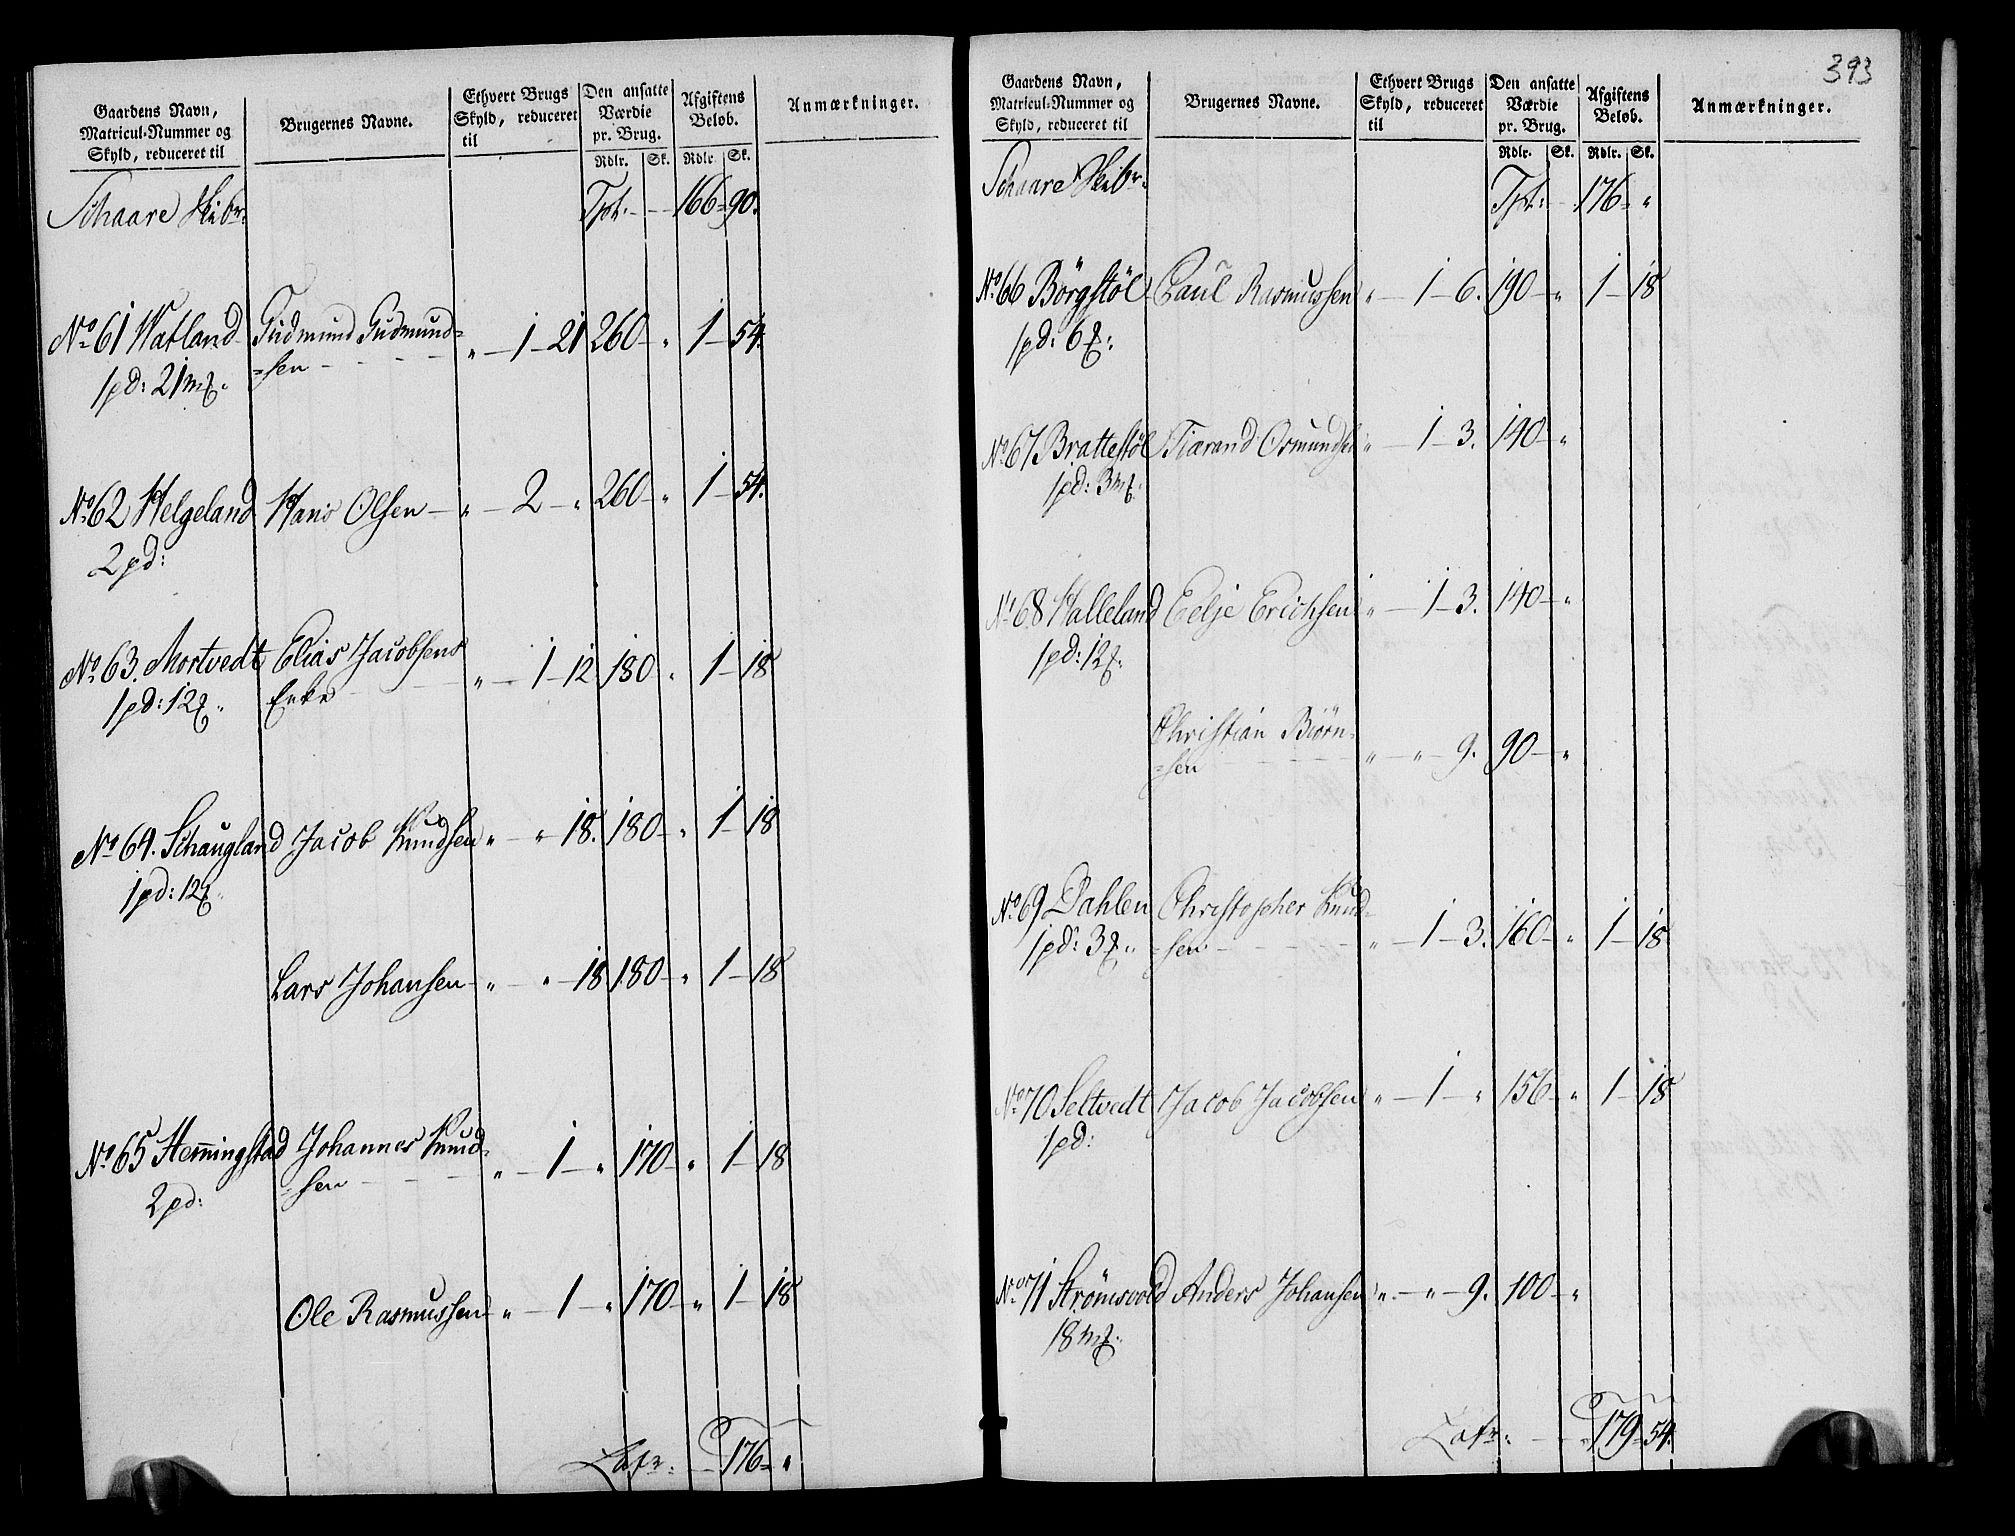 Gaardens Navn, Matricul-Nummer og Skyld, reduceret til | Brugernes Navne. | Ethvert Brugs Skyld, reduceret til | Den ansatte Værdie pr. Brug. Rdlr. Sk. | Afgiftens Beløb. Rdlr. Sk. | Anmærkninger.
Schaare Skibr: Tpt: 166 = 90.
No 61 Watland Gudmund Gudmund= „ 1 21 260 „ 1 54.
1 pd: 21 mk. =sen
No 62 Helgeland Hans Olsen „ 2 „ 260 „ 1 54.
2 pd:
No 63. Mortvedt Elias Jacobsens „ 1 12 180 „ 1 18
1 pd: 12 Enke
No 64. Schaugland Jacob Knudsen „ „ 18. 180 „ 1 18
1 pd: 12
Lars Johansen „ „ 18 180 „ 1 18
No 65 Hemingstad Johannes Knud= „ 1 „ 170 „ 1 18
2 pd: =sen
Ole Rasmussen „ 1 „ 170 „ 1 18
Latr: 176 = „
393
Gaardens Navn, Matricul-Nummer og Skyld, reduceret til | Brugernes Navne. | Ethvert Brugs Skyld, reduceret til | Den ansatte Værdie pr. Brug. Rdlr. Sk. | Afgiftens Beløb. Rdlr. Sk. | Anmærkninger.
Schaare Skibr: Tpt: 176 = „
No 66 Börgstöl Paul Rasmussen „ 1 6. 190 „ 1 18
1 pd: 6
No 67 Brattestöl Tiarand Osmundsen „ 1 3. 140 „
1 pd: 3 mk.
No 68 Halleland Eelje Erichsen „ 1 3. 140 „
1 pd: 12
Christian Biörn= „ „ 9. 90 „
=sen
No 69 Dahlen Christopher Knud= „ 1 3. 160 „ 1 18
1 pd: 3 =sen
No 70 Seltvedt Jacob Jacobsen „ 1 „ 156 „ 1 18
1 pd:
No 71 Strömsvold Anders Johansen „ „ 9. 100 „
18 mk.
Latr: 179 = 54.